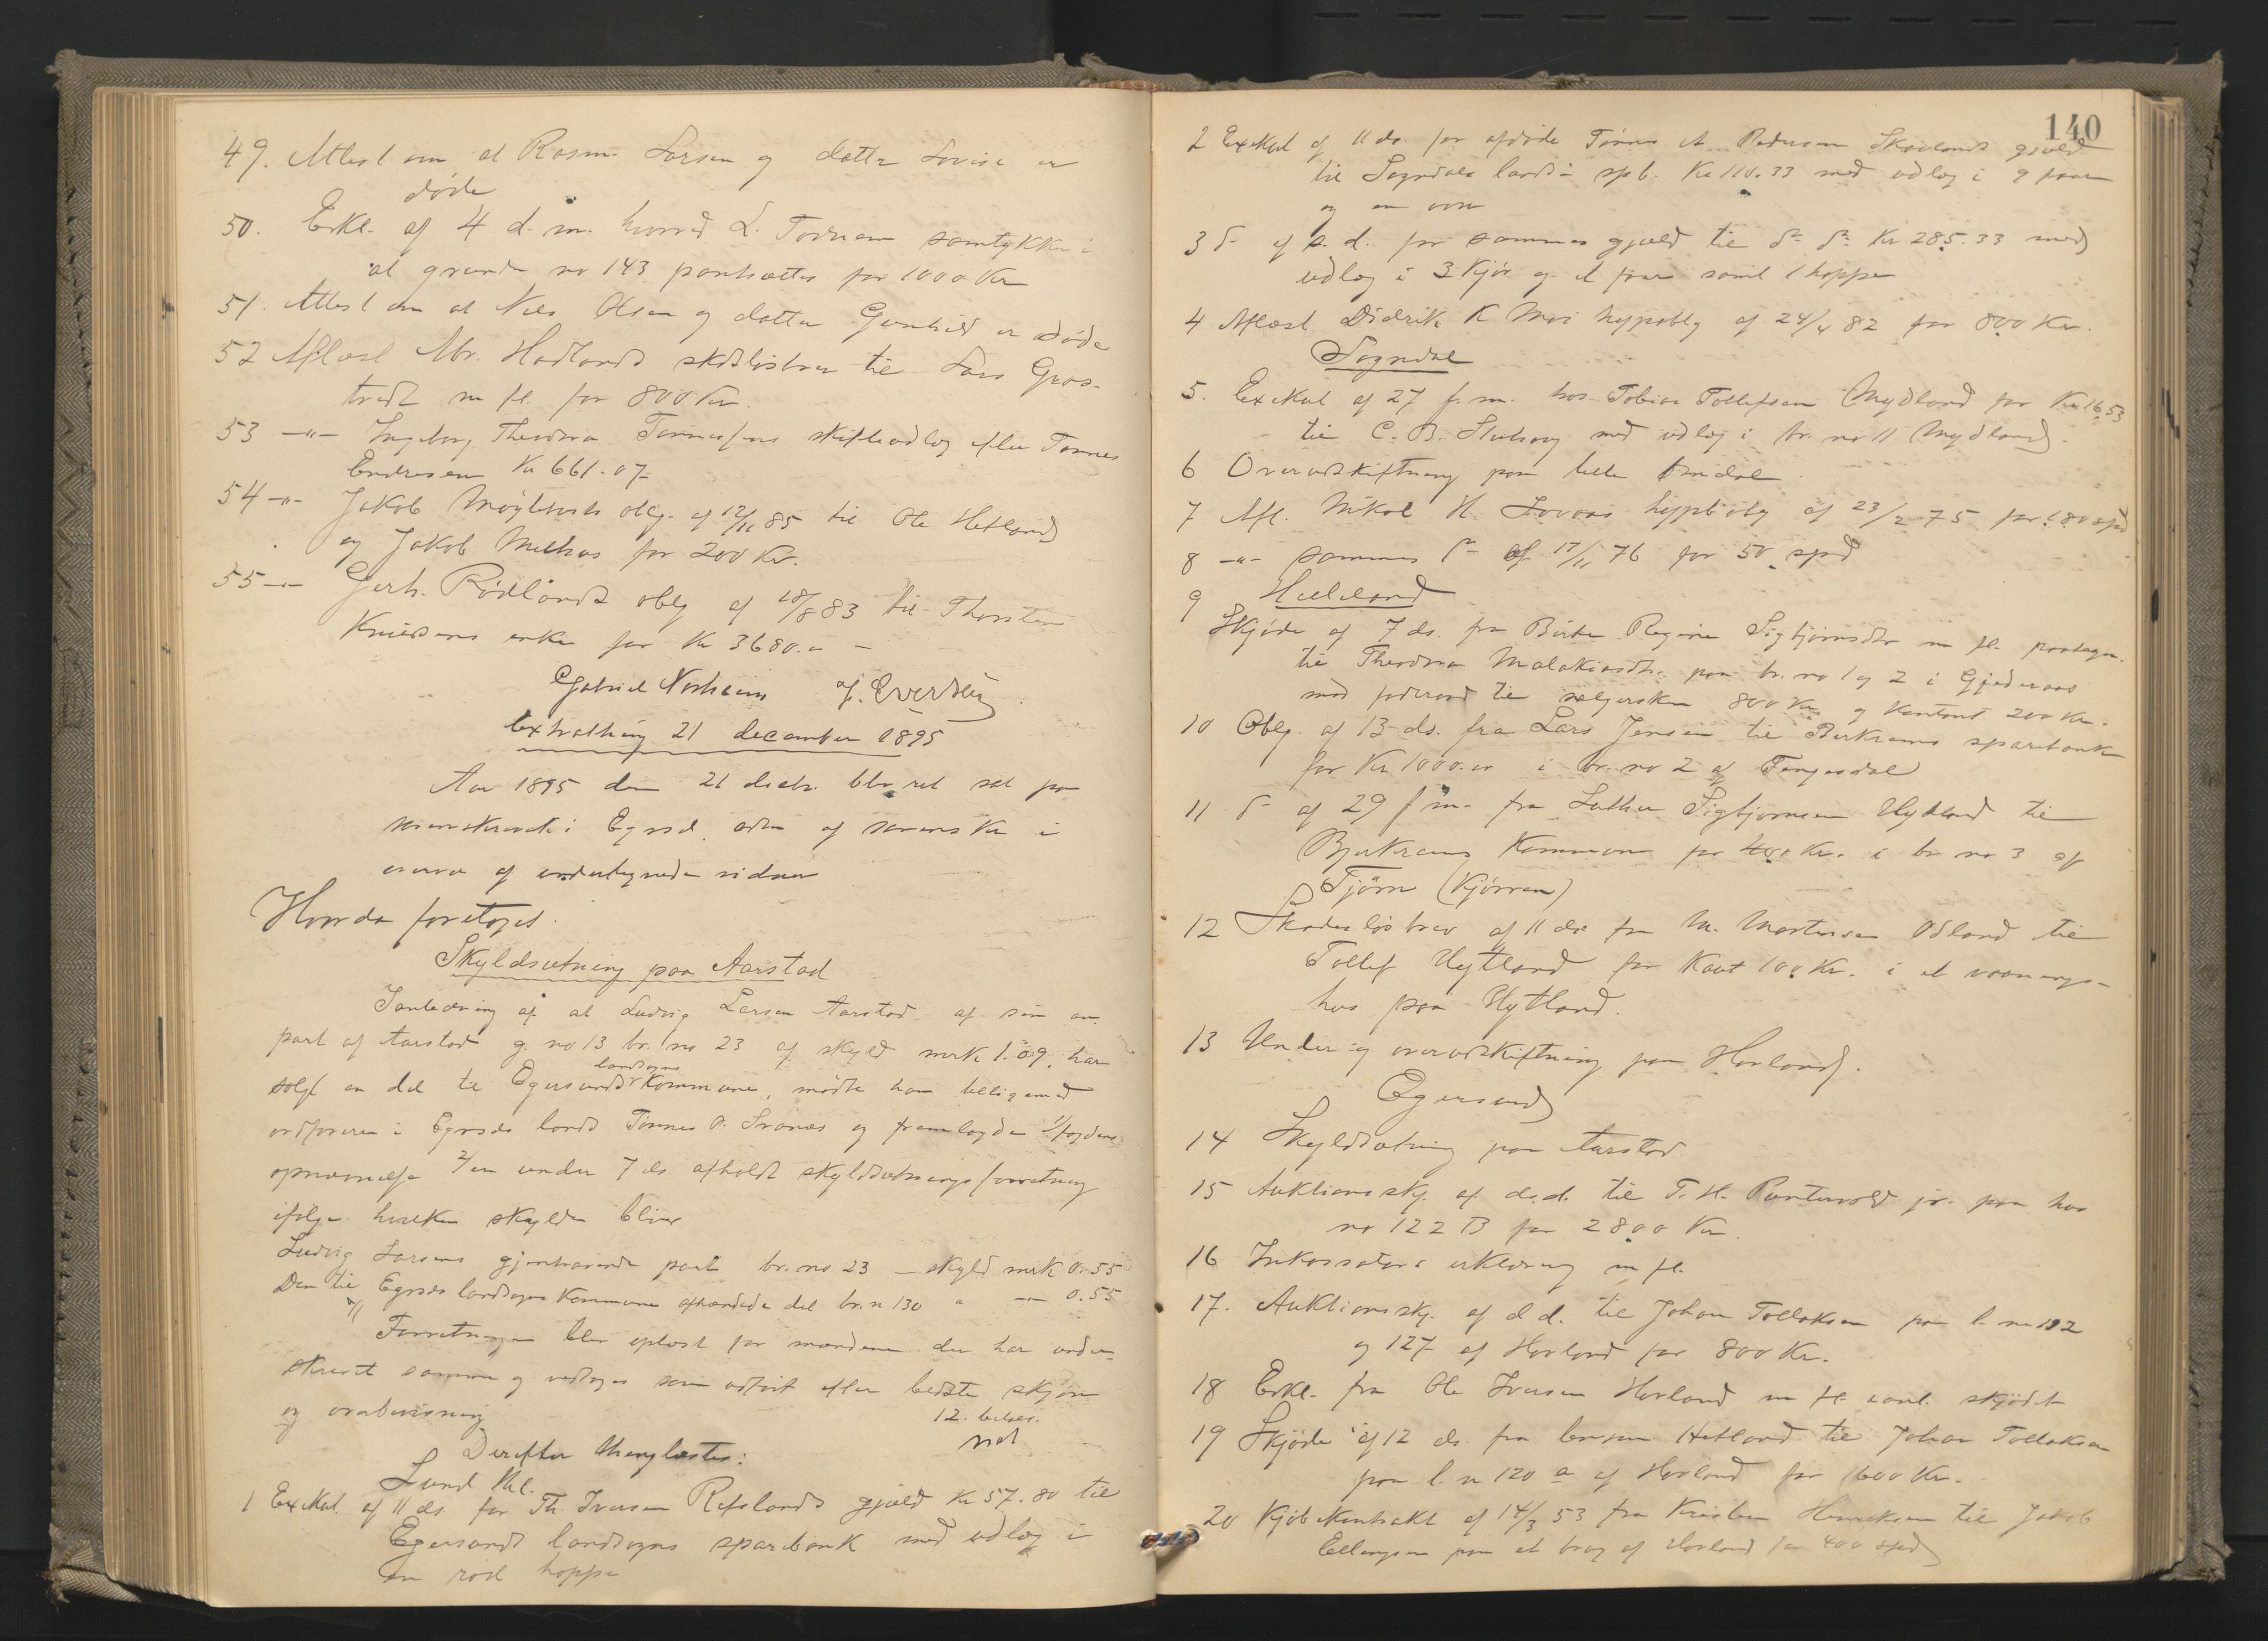 49. Attest om at Rasm. Larsen og datter Lovise er
døde
50. Erkl. af 4 d. m. hvorved L. samtykker i
at grunden no 143 pantsættes for 1000 Kr
51. Attest om at Nils Olsen og datter Gunhild er døde
52 Aflæst Mr. Hadlands skdsløsbrev til Lars Gras-
tvedt m fl. for 800 Kr.
53 -"- Ingeborg Theodora skifteudlæg efter Tønnes
Endresen Kr 661.07
54 -"- Jakob oblg. af 12/11 85 til Ole Hetland
og Jakob for 200 Kr.
55 -"- Gerh. Rødlands oblg af 18/8 83 til Thorsten
Knudsens enke for Kr 3680.
Gabriel
Extrathing 21 december 1895
Aar 1895 den 21 decbr. blev ret sat paa
i Egrsd. af i
overvær af undertegnede vidner
Hvorda foretoges.
Skyldsætning paa Aarstad
I anledning af at Ludvig Larsen Aarstad af sin an-
part af Aarstad g. no 13 br. no 23 af skyld mrk 1.09. har
solgt en del til Egersunds landsogns Kommune, mødte han tilligemed
ordføreren i Egrsds lands Tønnes O. Svanes og fremlagde 1/ fogdens
opnævnelse 2/ en under 7 ds. afholdt skyldsætningsforretning
ifølge hvilken skylden bliver
Ludvig Larsens gjenhavende part br. no 23 – skyld mrk 0.55
Den til Egrsds landsogns Kommune afhændede del br. n 130 " -"- 0.55
Forretningen blev oplæst for mændene der har under-
skrevet samme og vedtoges som udført efter bedste skjøn
og overbevisning
Derefter thinglæstes:
Lund
1 Exekut. af 11 ds. for Th. Iversen Refslands gjæld Kr 57.80 til
Egersunds landsogns sparebank med udlæg i
en rød hoppe
140
2 Exekut af 11 ds. for afdøde Tønnes A. Pedersen Skaalands gjæld
til Sogndals lands spb. Kr 110.33 med udlæg i 9 faar
og en
3 do af s. d. for sammes gjæld til do do Kr 285.33 med
udlæg i 3 Kjør og et faar samt 1 hoppe
4 Aflæst Didrik K Moi hypoblg af 24/4 82 for 800 Kr.
Sogndal
5. Exekut af 27 f. m. hos Tobias Tollefsen Mydland for Kr 16.53
til C. B. med udlæg i br. no 11 Mydland.
6 Overudskiftning paa lille Amdal
7 Afl. Mikal H. hyptoblg af 23/2 75 for 180 spd
8 -"- sammes do af 17/11 76 for 50 spd
Helleland
9 Skjøde af 7 ds. fra Birte Regine Sigbjørnsdtr m fl.
til Theodora Malakiasdtr. paa br. no 1 og 2 i Gjedreaas
med føderaad til sælgersken 800 Kr og Kontant 200 Kr.
10 Oblg. af 13 ds. fra Lars Jensen til Birkrems sparebank
for Kr 1000.00 i br. no 2 af Tengesdal
11 do af 29 f m. fra Luther Sigbjørnsen Hytland til
Bjerkrems Kommune for 400 Kr. i br no 3 af
Tjørn (Kjørren)
12 Skadesløsbrev af 11 ds fra M. Mortensen Odland til
Tollef Hytland for Kaut 100 Kr. i et vaanings-
hus paa Hytland.
13 Under og overudskiftning paa Hovland.
Egersund
14 Skyldsætning paa Aarstad
15 Auktionsskj. af d. d. til T. H. Puntervold jr. paa hus
no 122 B for 2800 Kr.
16 Inkassators erklæring m fl.
17. Auktionsskj. af d d. til Johan Tollaksen paa
og 127 af Hovland for 800 Kr.
18 Erkl. fra Ole Iversen Hovland m fl. skjødet
19 Skjøde af 12 ds. fra Hetland til Johan Tollaksen
paa l. n 120 a af Hovland for 1600 Kr.
20 Kjøbekontrakt af 14/3 53 fra Henriksen til Jakob
Ellingsen paa et brug af Hovland for 400 spd